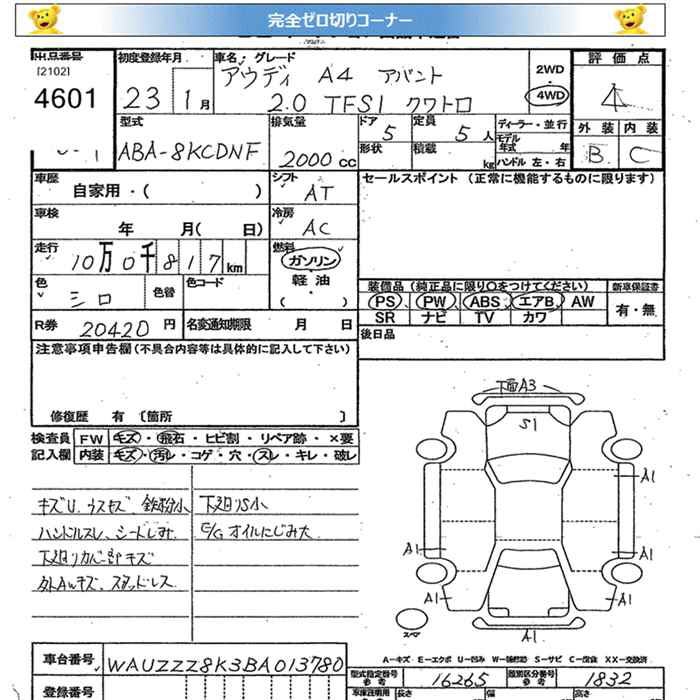 完全ゼロ切りコーナー
出品番号 初度登録年月 車名・グレード 評価点
[2102] アウディ A4 アバント 2WD
4601 23 1月 2.0 TFSI クワトロ 4WD 4
型式 排気量 ドア 定員 ディーラー・並行 外装 内装
ABA-8KCDNF 2000cc 5 5人 モデル年式 年 B C
形状 積載 kg ハンドル 左・右
車歴 自家用・( ) シフト AT セールスポイント (正常に機能するものに限ります)
車検 年 月( 日) 冷房 AC
走行 10万0千817km 燃料 ガソリン
色 シロ 色替 色コード 軽油 ( )
装備品(純正品に限り○をつけてください) 新車保証書
PS PW ABS エアB AW 有・無
SR ナビ TV カワ
R券 20420円 名変通知期限 月 日
後日品
注意事項申告欄(不具合内容等は具体的に記入して下さい)
修復歴 有〔箇所 〕
検査員 FW キズ・飛石・ヒビ割・リペア跡・×要
記入欄 内装 キズ・汚レ・コゲ・穴・スレ・キレ・破レ
キズU、ウスキズ、鉄粉小 下廻りS小
ハンドルスレ、シートしみ E/G オイルにじみ大
下廻りカバー部キズ
外AWキズ、スタッドレス
下面A3
S1
A1
A1 A1
A1 A1
スペア
A1
A-キズ E-エクボ U-凹み W-補修跡 S-サビ C-腐食 XX-交換済
車台番号 WAUZZZ8K3BA013780
型式指定番号 参考 16265 類別区分番号 参考 1832
登録番号 車検証明用 参考 長さ 幅 高さ